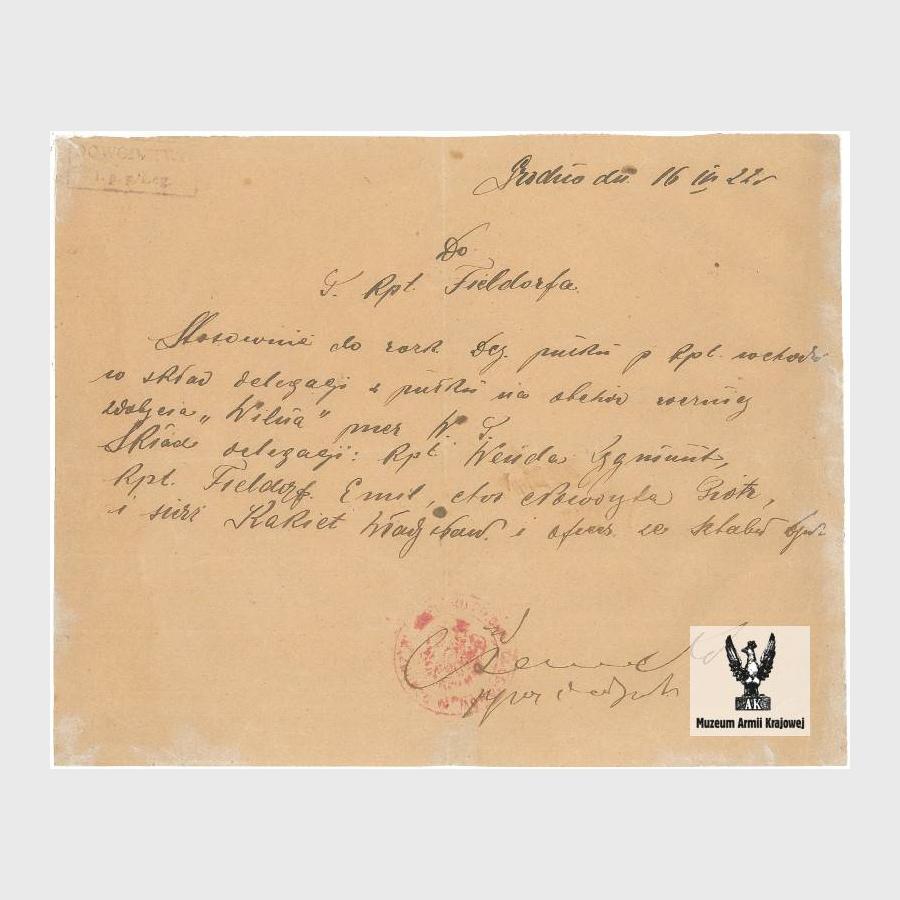 DOWÓDZTWO
Grodno dn. 16 IV 22r
Do
P. Kpt. Fieldorfa
Stosownie do rozk. Dcy. pułku p Kpt. wchodzi
w skład delegacji z pułku na obchód rocznicy
zdobycia „Wilna” przez W. P.
Skład delegacji: Kpt. Wenda Zygmunt,
Kpt. Fieldorf Emil, Piotr,
i sierż Władysław. i oficer ze sztabu
AK
Muzeum Armii Krajowej